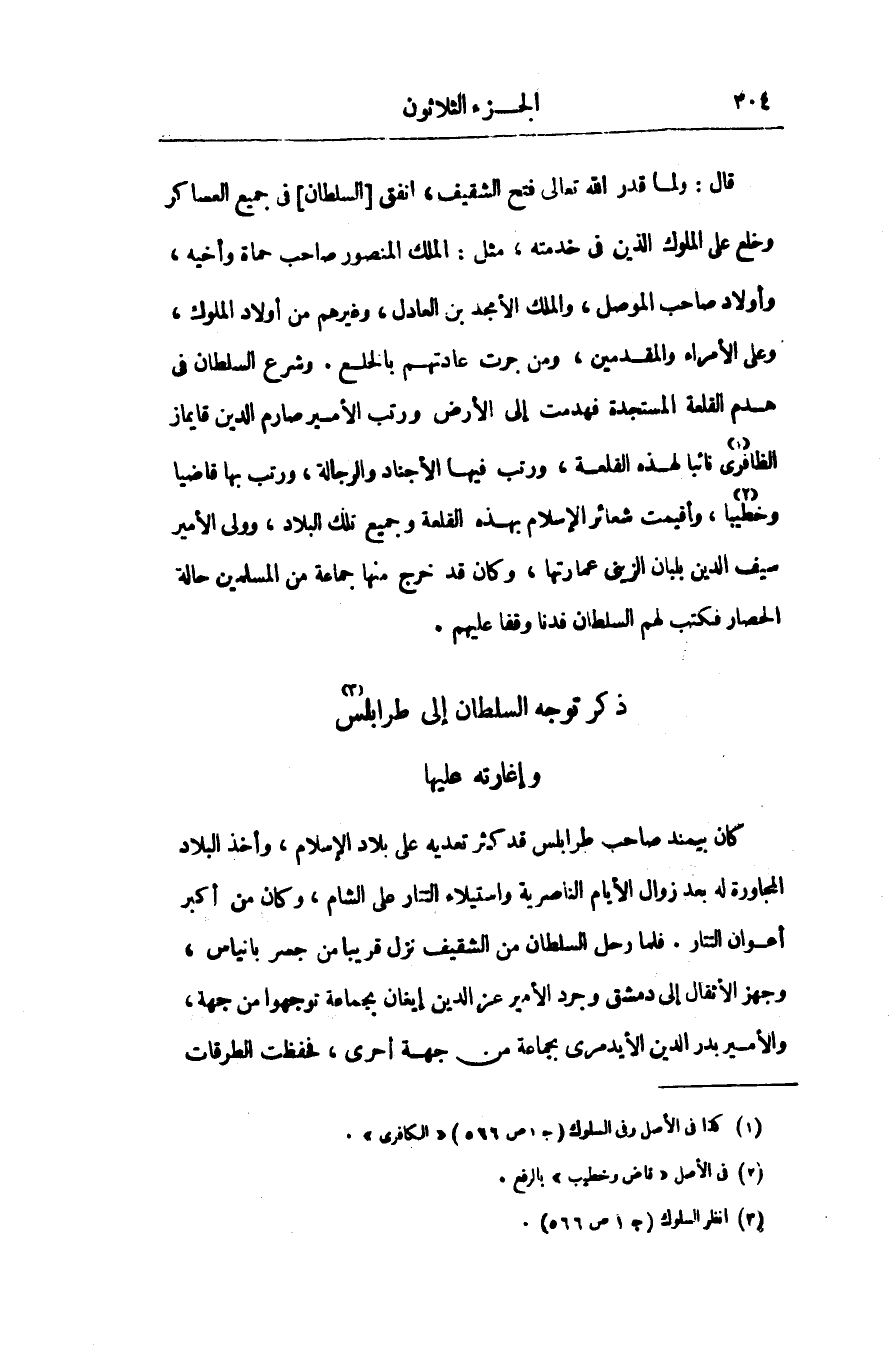 ٣٠٤ الجـــزء الثلاثون
قال : ولمـا قدر الله تعالى فتح الشقيف ، انفق [السلطان] فى جميع العساكر
وخلع على الملوك الذين فى خدمته ، مثل : الملك المنصور صاحب حماة وأخيه ،
وأولاد صاحب الموصل ، والملك الأمجد بن العادل ، وغيرهم من أولاد الملوك ،
وعلى الأمراء والمقـدمين ، ومن جرت عادتهـم بالخلـع . وشرع السلطان فى
هـدم القلعة المستجدة فهدمت إلى الأرض ورتب الأمـير صارم الدين قايماز
الظافرى(١) نائبا لهـذه القلعـة ، ورتب فيهـا الأجناد والرجالة ، ورتب بها قاضيا
وخطيبا(٢) ، وأقيمت شعائر الإسلام بهـذه القلعة وجميع تلك البلاد ، وولى الأمير
سيف الدين بلبان الزينى عمارتها ، وكان قد خرج منها جماعة من المسلمين حالة
الحصار فكتب لهم السلطان فدنا وقفا عليهم .
ذكر توجه السلطان إلى طرابلس(٣)
وإغارته عليها
كان بيمند صاحب طرابلس قد كثر تعديه على بلاد الإسلام ، وأخذ البلاد
المجاورة له بعد زوال الأيام الناصرية واستيلاء التتار على الشام ، وكان من أكبر
أعـوان التتار . فلما رحل السلطان من الشقيف نزل قريبا من جسر بانياس ،
وجهز الأثقال إلى دمشق وجرد الأمير عز الدين إيغان بجماعة توجهوا من جهة ،
والأمـير بدر الدين الأيدمرى بجماعة من جهـة أحرى ، فحفظت الطرقات
(١) كذا فى الأصل وفى السلوك (ج ١ ص ٥٦٦) « الكافرى » .
(٢) فى الأصل « قاض وخطيب » بالرفع .
(٣) انظر السلوك (ج ١ ص ٥٦٦) .